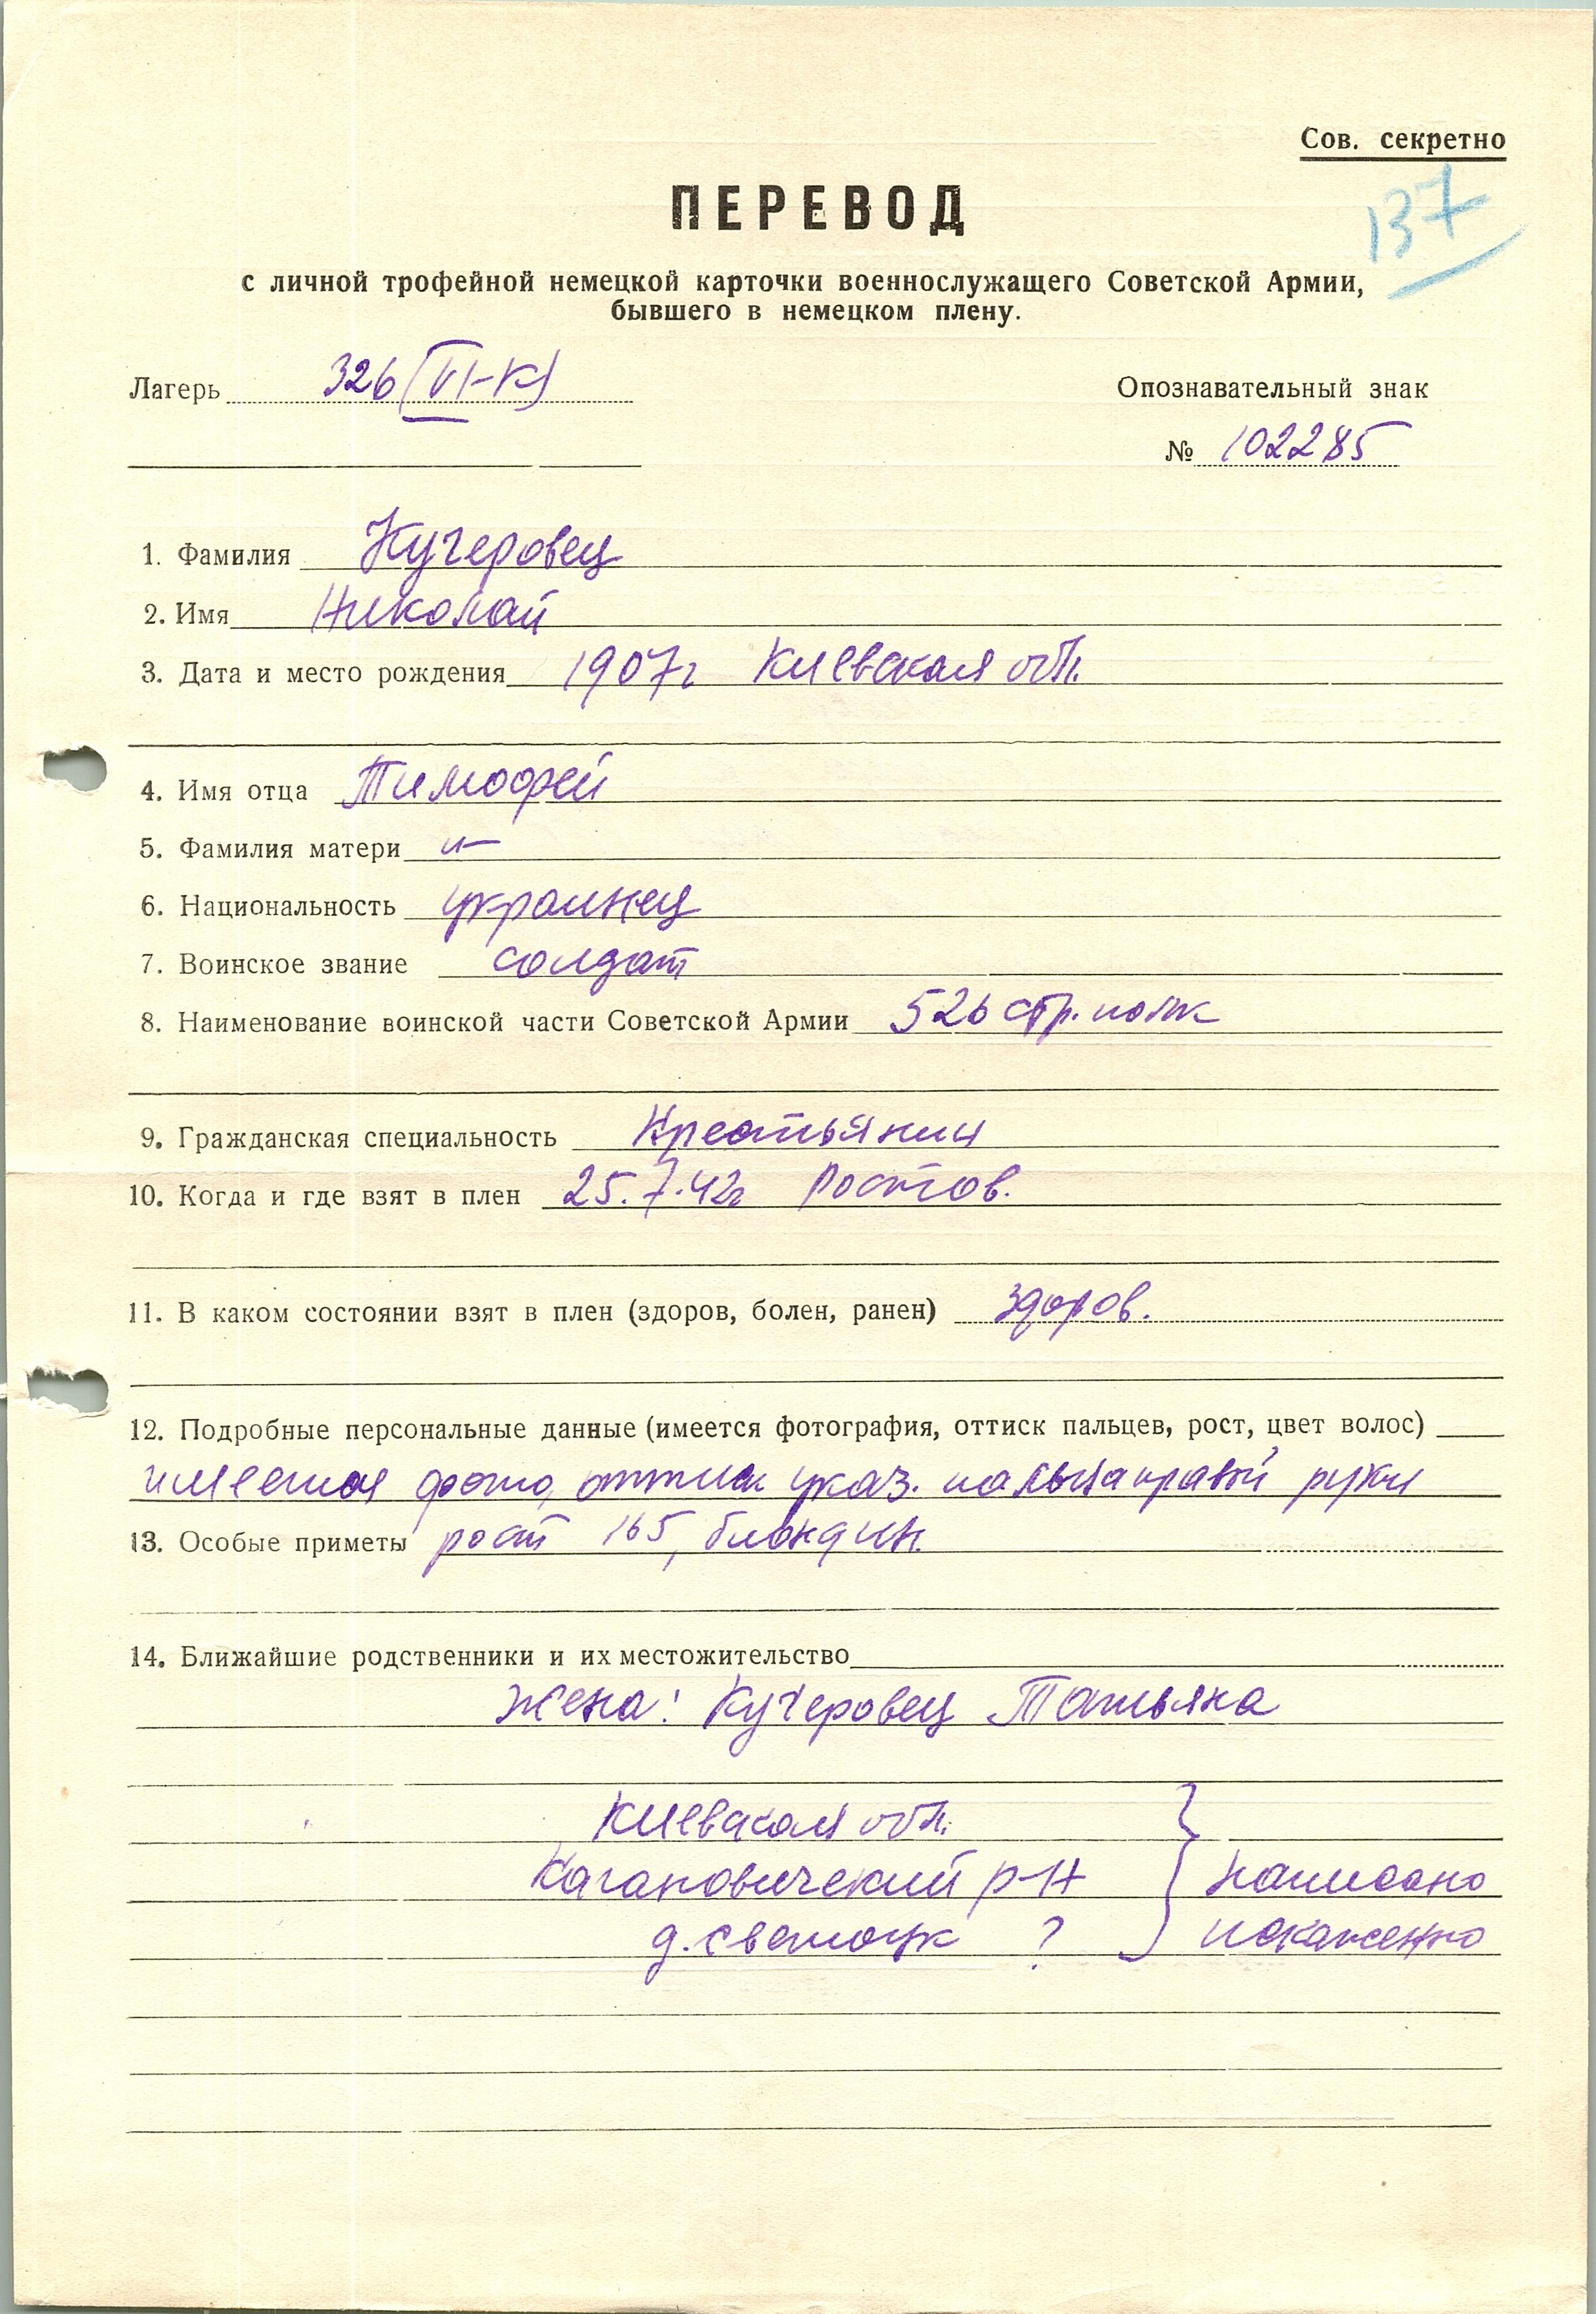 Сов. секретно
137
ПЕРЕВОД
с личной трофейной немецкой карточки военнослужащего Советской Армии,
бывшего в немецком плену.
Лагерь 326 (VI-К)
Опознавательный знак
№ 102285
1. Фамилия Кучеровец
2. Имя Николай
3. Дата и место рождения 1907г Киевская обл.
4. Имя отца Тимофей
5. Фамилия матери
6. Национальность украинец
7. Воинское звание солдат
8. Наименование воинской части Советской Армии 526 стр. полк
9. Гражданская специальность Крестьянин
10. Когда и где взят в плен 25.7.42г Ростов.
11. В каком состоянии взят в плен (здоров, болен, ранен) здоров.
12. Подробные персональные данные (имеется фотография, оттиск пальцев, рост, цвет волос)
имеется фото, оттиск указ. пальца правой руки
13. Особые приметы рост 165, блондин.
14. Ближайшие родственники и их местожительство
жена: Кучеровец Татьяна
Киевская обл.
Кагановичский р-н } написано
д. ? искаженно